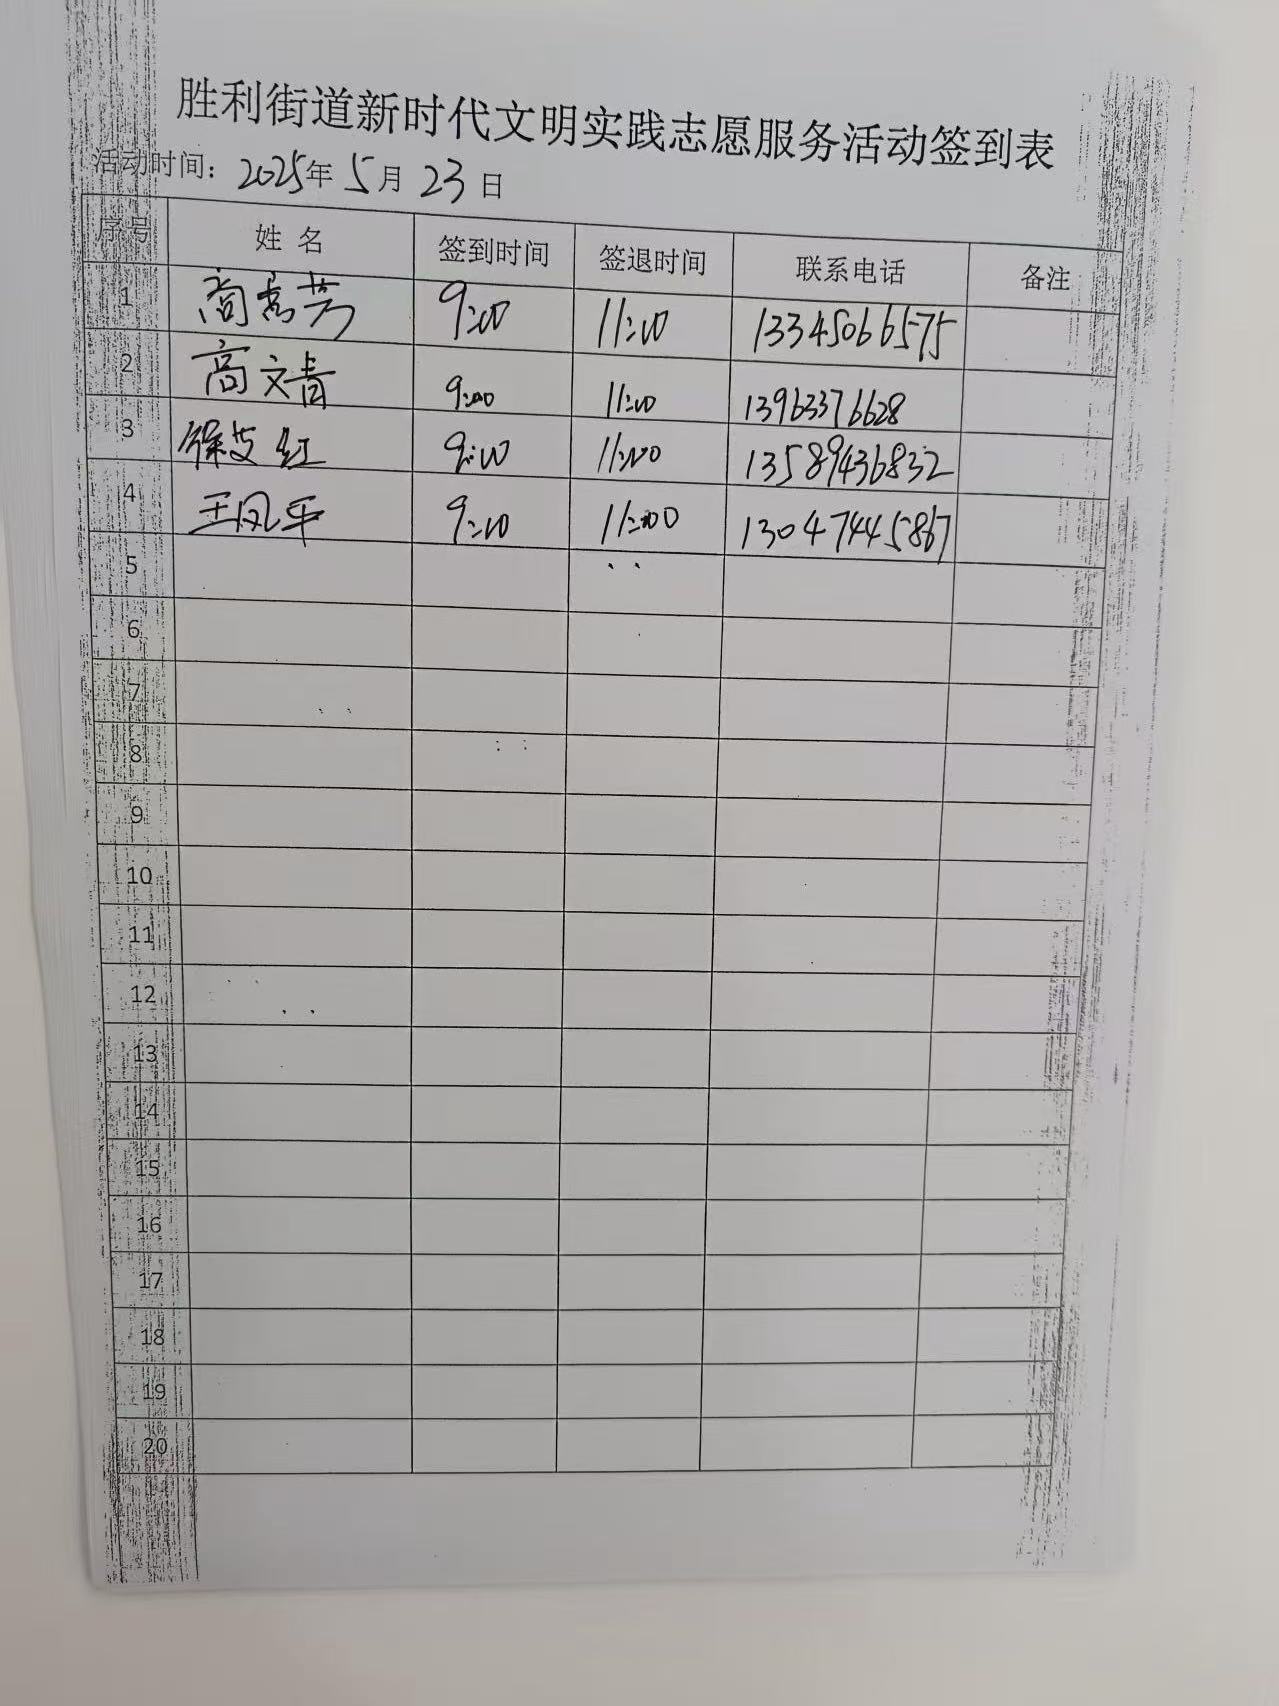 胜利街道新时代文明实践志愿服务活动签到表
活动时间：2025年 5月 23日
序号 姓 名 签到时间 签退时间 联系电话 备注
1 高秀芳 9:00 11:00 13345066575
2 高文青 9:00 11:00 13963376628
3 徐艾红 9:00 11:00 13589436832
4 王凤平 9:00 11:00 13047445867
5
6
7
8
9
10
11
12
13
14
15
16
17
18
19
20